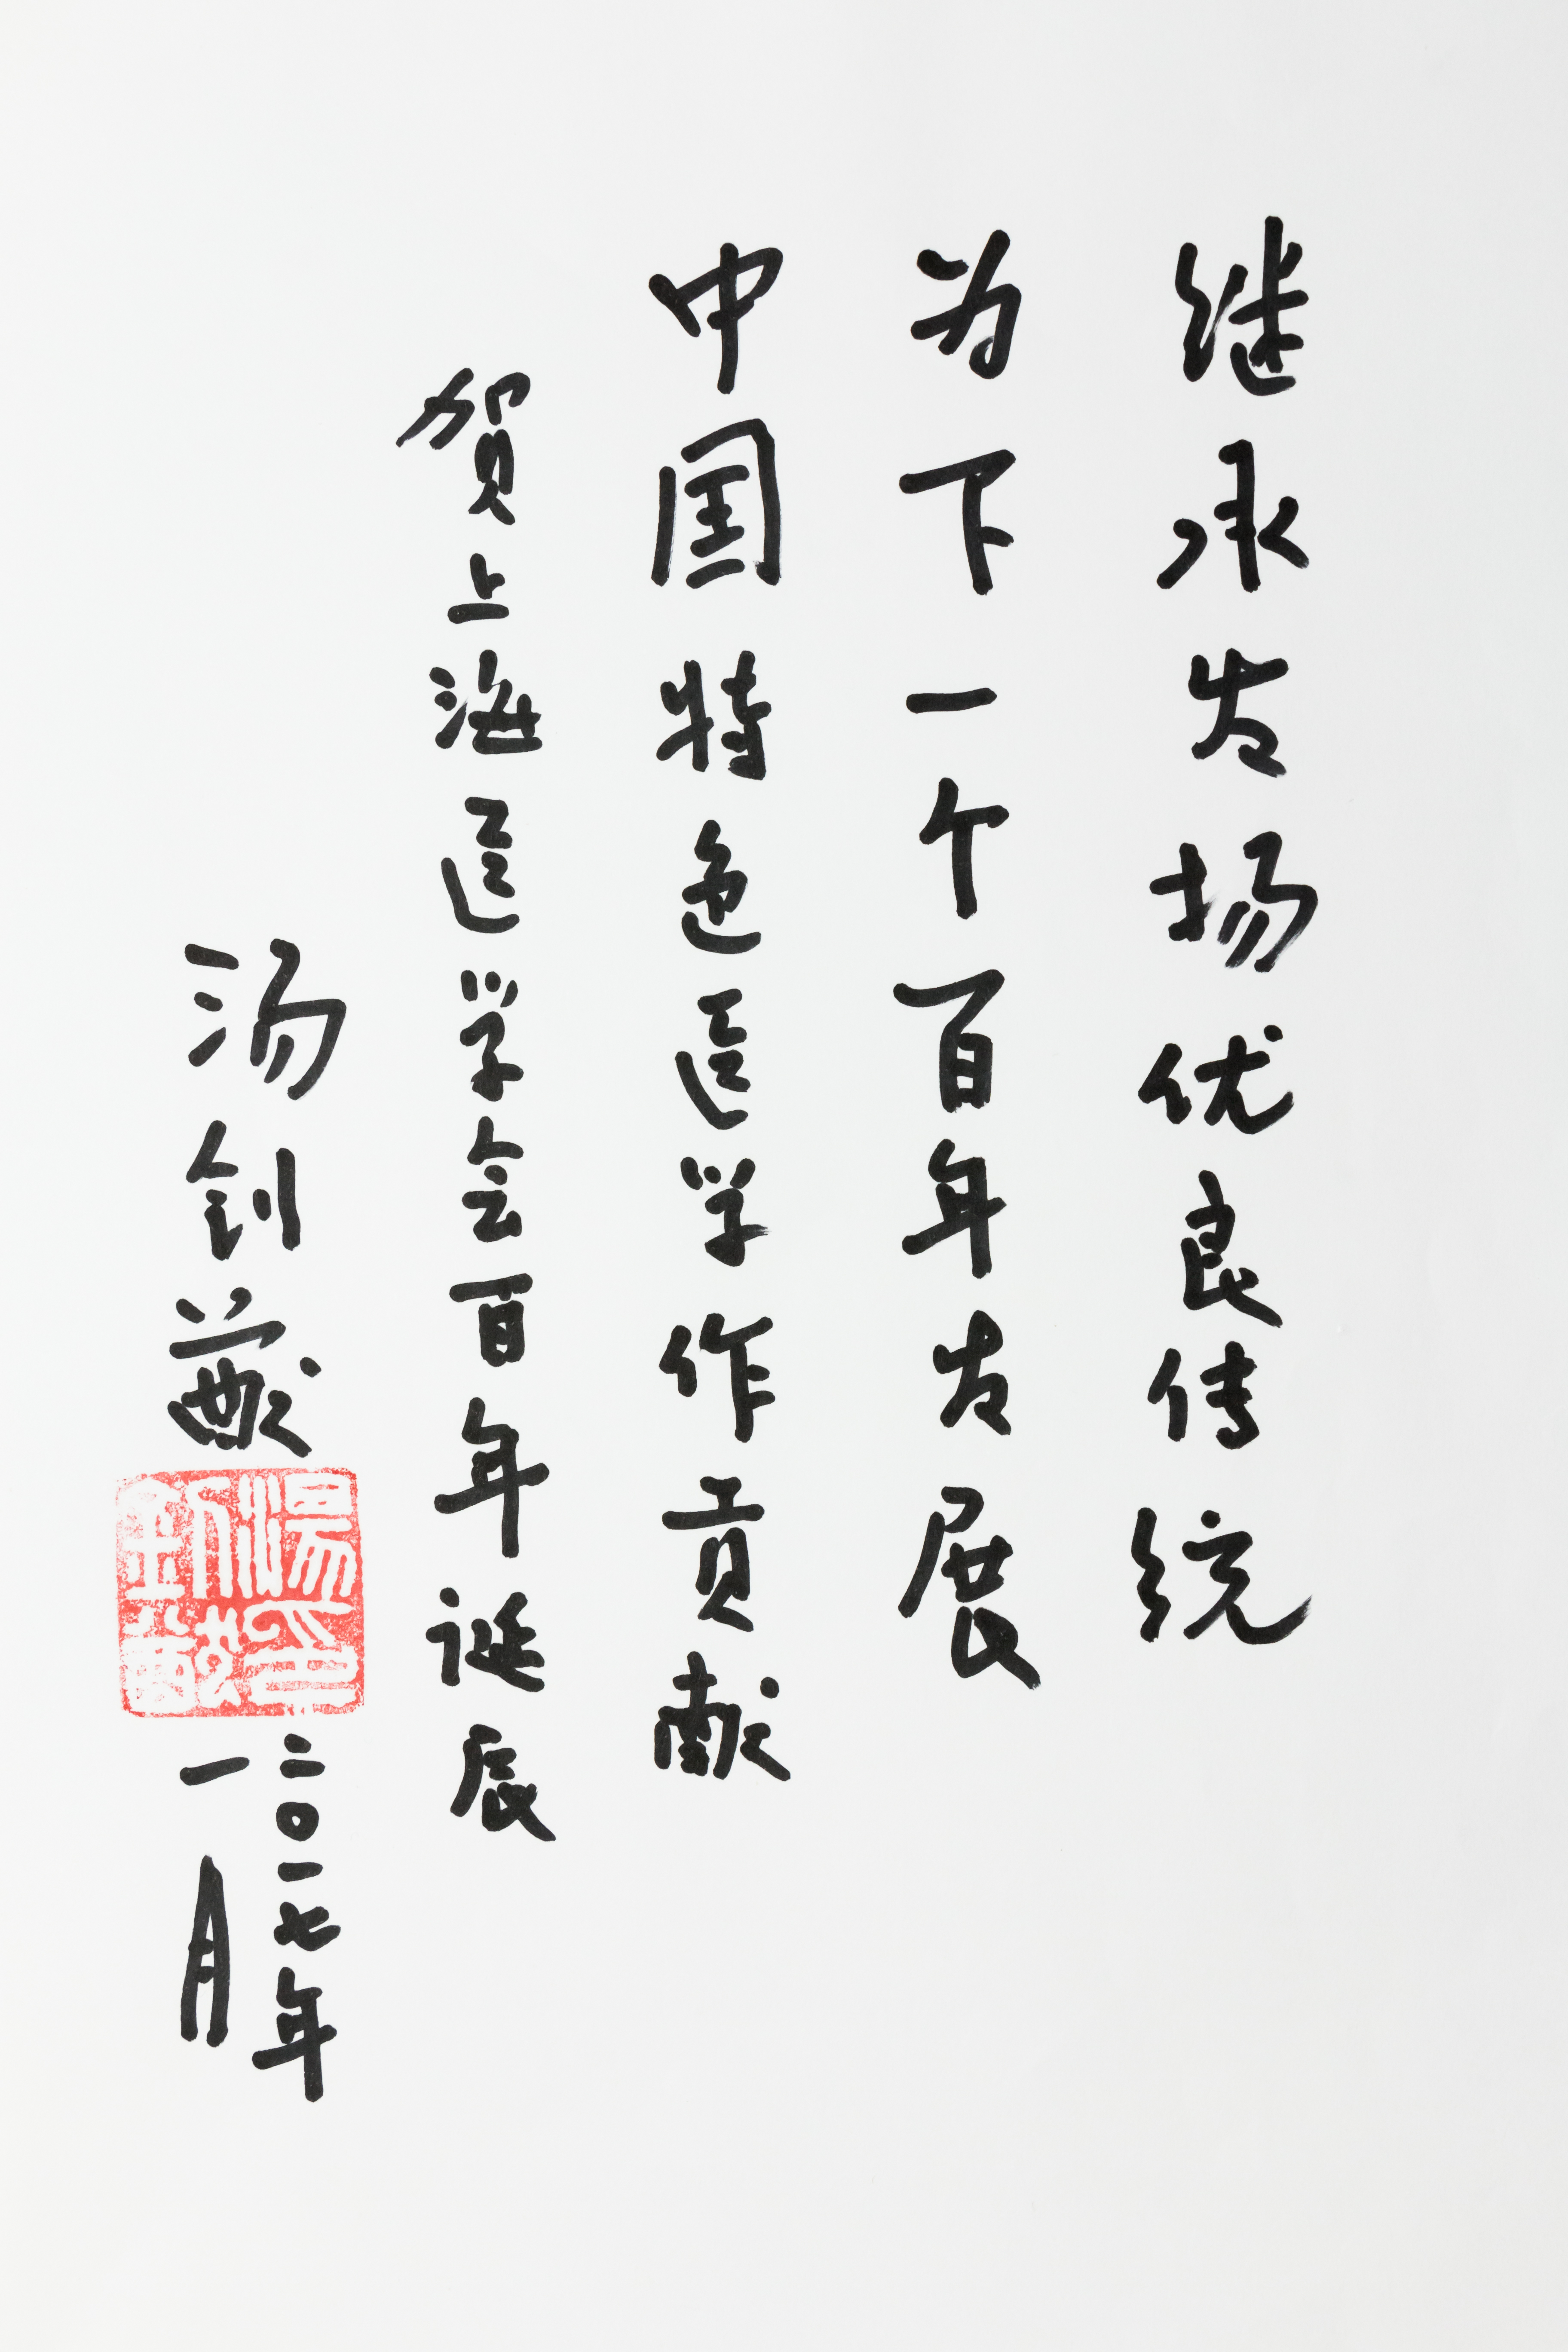 继承发扬优良传统
为下一个百年发展
中国特色医学作贡献
贺上海医学会百年诞辰
汤钊猷
二〇一七年
一月